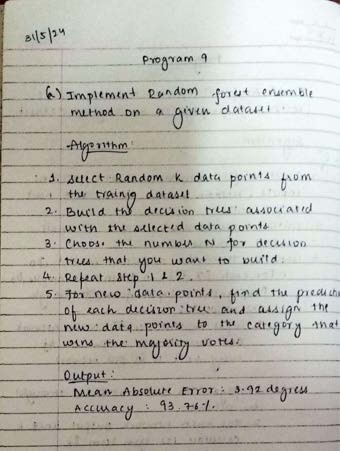 31/5/24
Program 9
a) Implement Random forest ensemble
method on a given dataset.
Algorithm:
1. Select Random K data points from
the trainig dataset
2. Build the decision trees associated
with the selected data points
3. Choose the number N for decision
trees that you want to build.
4. Repeat Step 1 & 2.
5. For new data points, find the predictn
of each decision tree and assign the
new data points to the category that
wins the majority votes.
Output:
Mean Absolute Error: 3.92 degress
Accuracy : 93.76%.